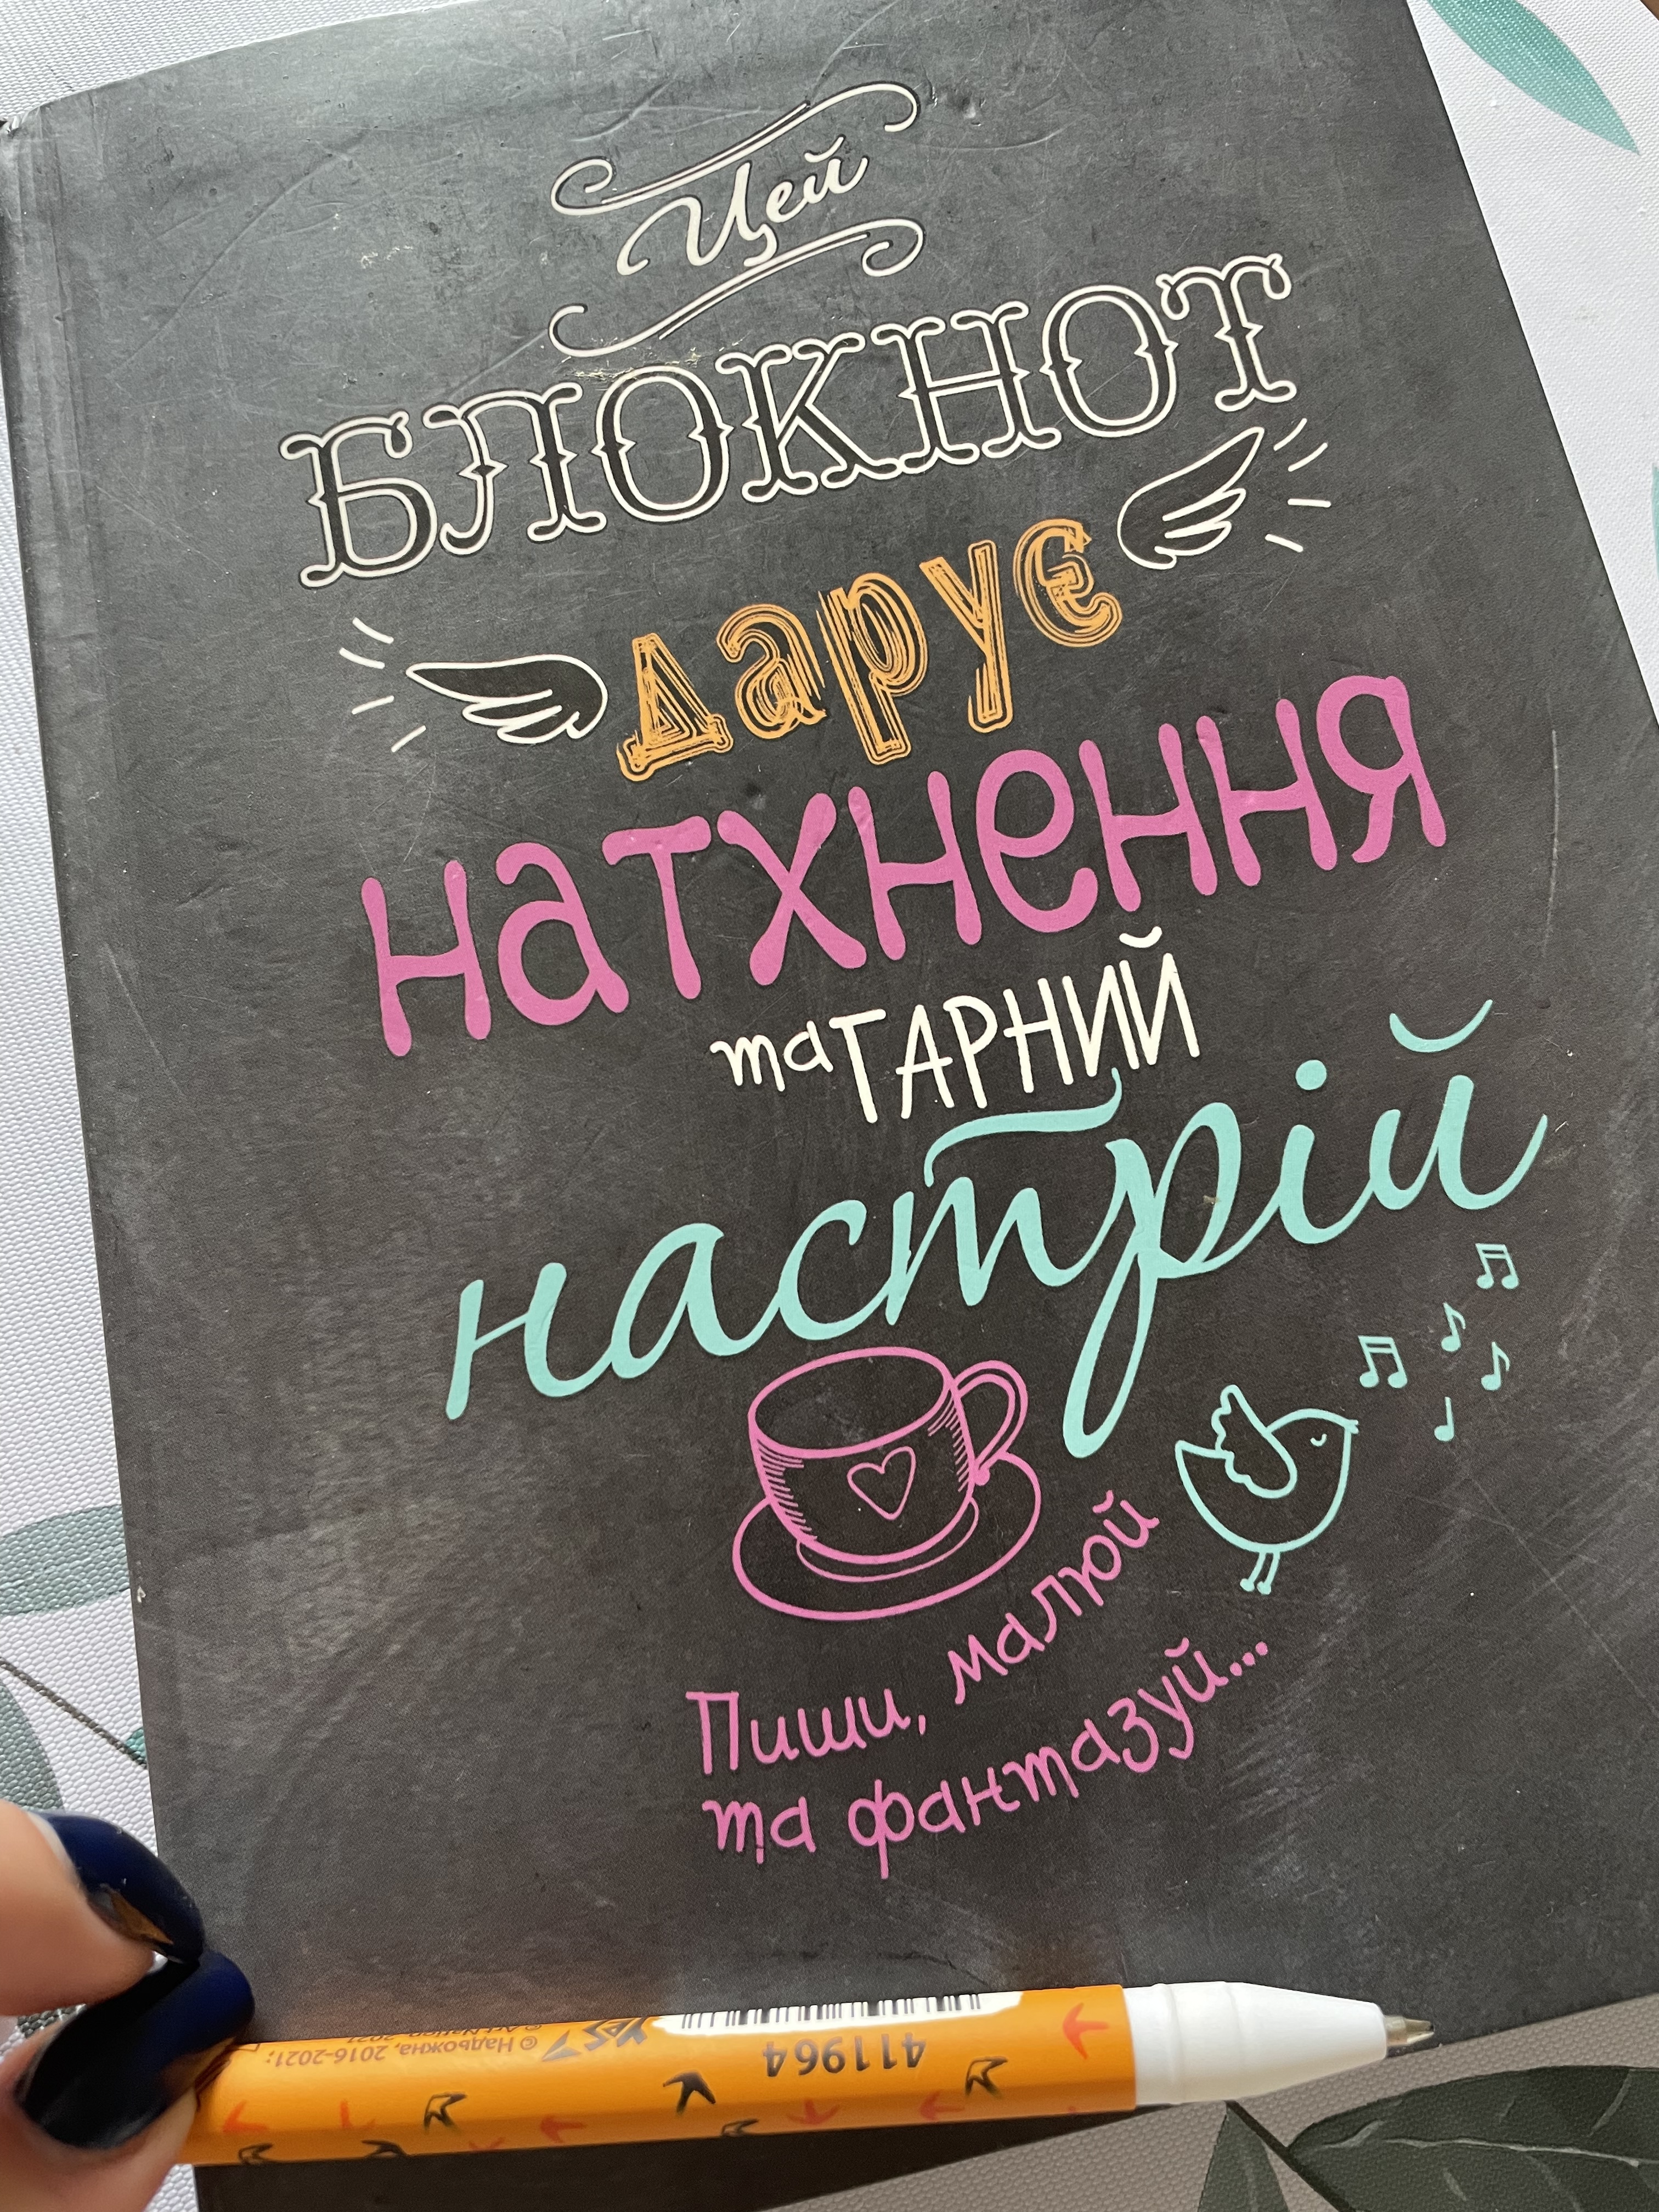 Цей
БЛОКНОТ
дарує
натхнення
та ГАРНИЙ
настрій
Пиши, малюй
та фантазуй...
411964
YES
© Надьожна, 2016-2021;